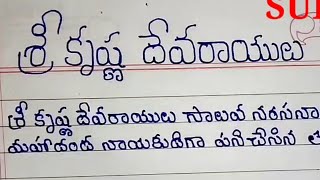 SU
శ్రీ కృష్ణ దేవరాయులు
శ్రీ కృష్ణ దేవరాయులు సాలువ నరసనా
మహాదండ నాయకుడిగా పనిచేసిన త